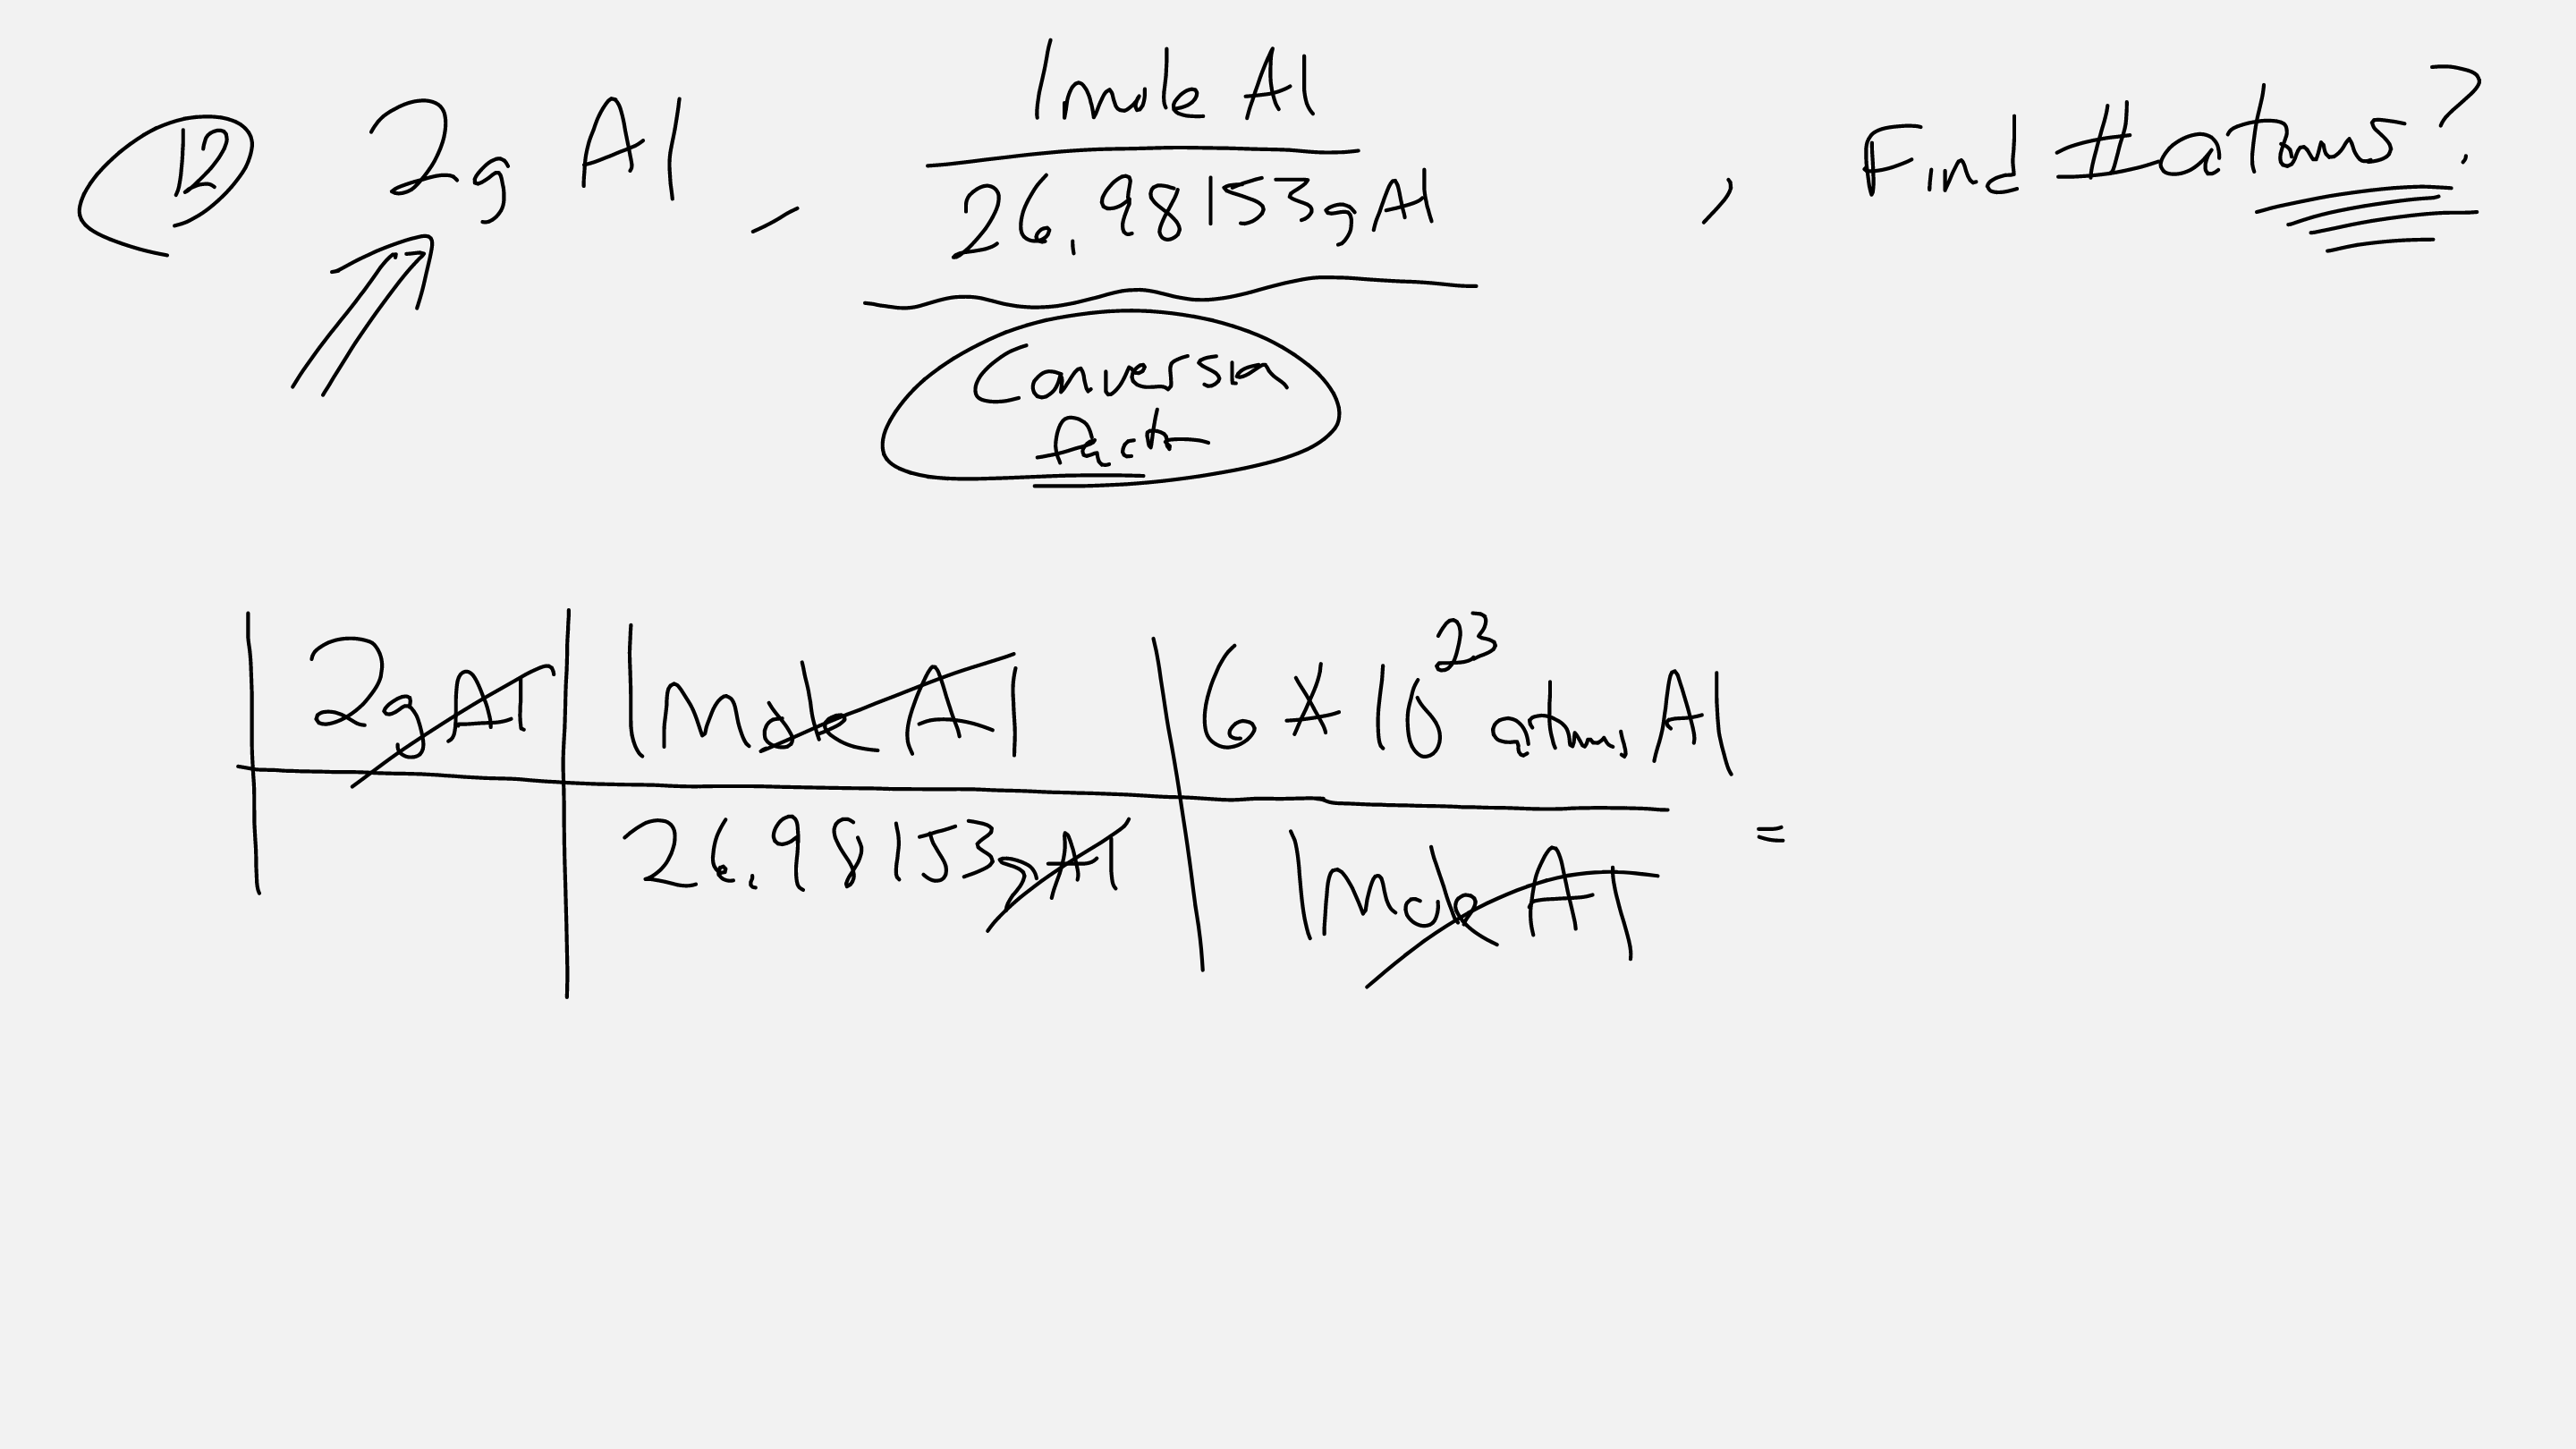 12 2g Al - 1mole Al / 26.98153g Al , Find #atoms?
Conversion
factor
2g Al | 1Mole Al | 6 * 10^23 atoms Al
26.98153g Al | 1Mole Al =